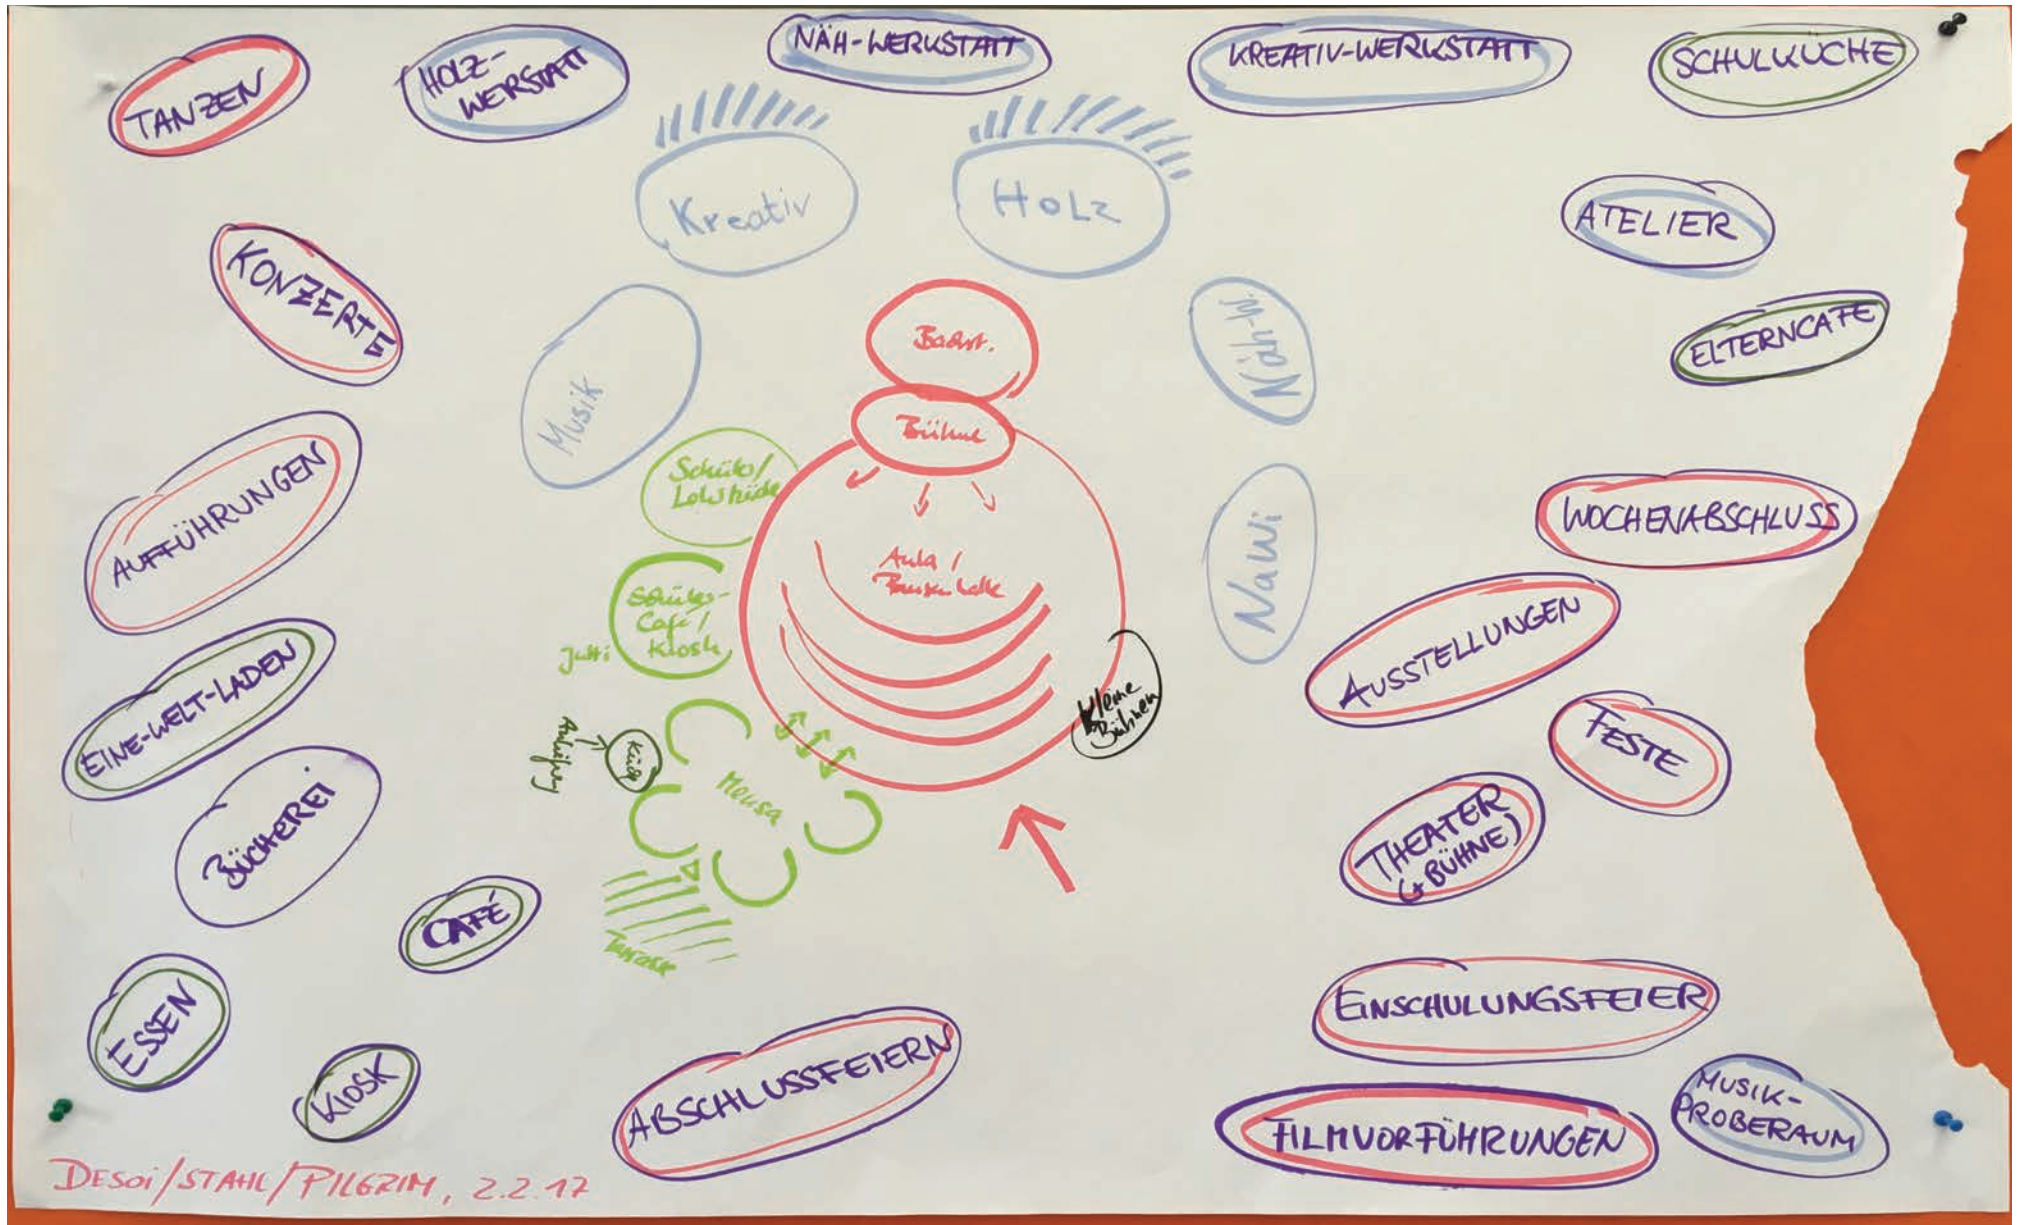 TANZEN
HOLZ-
WERSTATT
NÄH-WERKSTATT
KREATIV-WERKSTATT
SCHULKÜCHE
Kreativ
HOLZ
ATELIER
KONZERTE
Musik
Backst.
Näh-W.
ELTERNCAFE
Bühne
AUFFÜHRUNGEN
Schüler/
NaWi
WOCHENABSCHLUSS
Aula/
Pausenhalle
Schüler-
Café/
Kiosk
AUSSTELLUNGEN
EINE-WELT-LADEN
kleine
Bühnen
FESTE
Anlieferung
Küche
Mensa
BÜCHEREI
THEATER
(+BÜHNE)
CAFÉ
Terrasse
ESSEN
EINSCHULUNGSFEIER
KIOSK
ABSCHLUSSFEIERN
FILMVORFÜHRUNGEN
MUSIK-
PROBERAUM
DESOI/STAHL/PILGRIM, 2.2.17